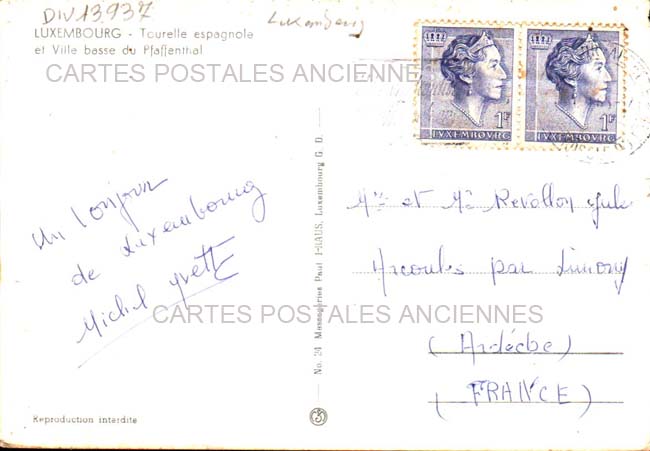 DIV13937
Luxembourg
LUXEMBOURG - Tourelle espagnole
et Ville basse du Pfaffenthal
CARTES POSTALES ANCIENNES
1F
LVXEMBOVRG
1F
LVXEMBOVRG
Un bonjour
de Luxembourg
Michel Yvette
No. 24 Messageries Paul KRAUS, Luxembourg G. D.
Mme et Mr Revollon Jule
Arcoules par Limony
(Ardèche)
(FRANCE)
CARTES POSTALES ANCIENNES
Reproduction interdite